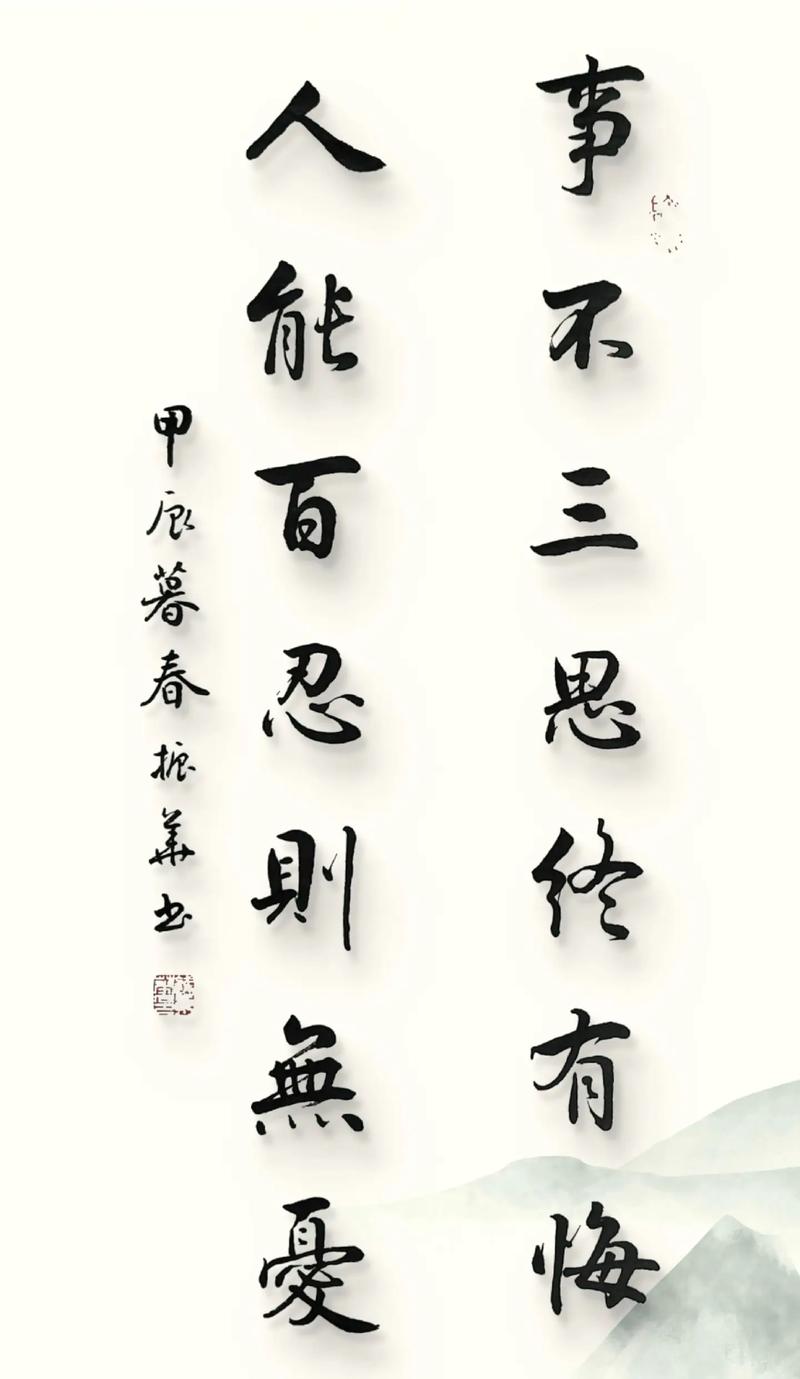 事不三思終有悔
人能百忍則無憂
甲辰暮春振華书